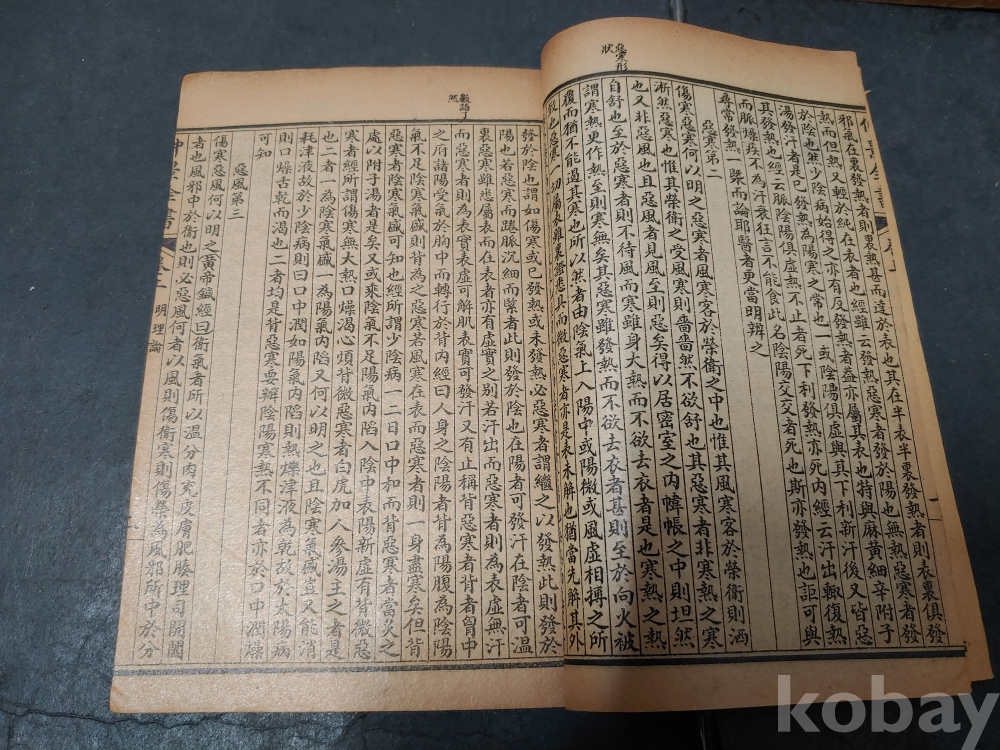 惡寒形
狀
邪氣在裏發熱者則裏熱甚而達於表也其在半表半裏發熱者則表裏俱發
熱而但熱又輕於純在表者也經雖云發熱惡寒者發於陽也無熱惡寒者發
於陰也然少陰病始得之亦有反發熱者蓋亦屬其表也特與麻黃細辛附子
湯發汗者是已發熱為陽寒之常也一或陰陽俱虛與其下利新汗後又皆惡
其發熱也經云脈陰陽俱虛熱不止者死下利發熱亦死內經云汗出輙復熱
而脈燥疾不為汗衰狂言不能食此名陰陽交交者死也斯亦發熱也詎可與
尋常發熱一槩而論耶醫者更當明辨之
惡寒第二
傷寒惡寒何以明之惡寒者風寒客於榮衞之中也惟其風寒客於榮衞則洒
淅然惡寒也惟其榮衞之受風寒則嗇嗇然不欲舒也其惡寒者非寒熱之寒
也又非惡風也且惡風者見風至則惡矣得以居密室之內幃帳之中則坦然
自舒也至於惡寒者則不待風而寒雖身大熱而不欲去衣者是也寒熱之熱
謂寒熱更作熱至則寒無矣其惡寒雖發熱而不欲去衣者甚則至於向火被
覆而猶不能遏其寒也所以然者由陰氣上入陽中或陽微或風虛相搏之所
致也惡寒一切屬表雖裏證悉具而微惡寒者亦是表未解也猶當先解其外
數語了
然
發於陰也謂如傷寒或已發熱或未發熱必惡寒者謂繼之以發熱此則發於
陽也若惡寒而踡脈沉細而緊者此則發於陰也在陽者可發汗在陰者可溫
裏惡寒雖悉屬表而在表者亦有虛實之別若汗出而惡寒者則為表虛無汗
而惡寒者則為表實表虛可解肌表實可發汗又有止稱背惡寒者背者胷中
之府諸陽受氣於胸中而轉行於背內經曰人身之陰陽者背為陽腹為陰陽
氣不足陰寒氣盛則背為之惡寒若風寒在表而惡寒者則一身盡寒矣但背
惡寒者陰寒氣盛可知也經所謂少陰病一二日口中和而背惡寒者當灸之
處以附子湯者是矣又或乘陰氣不足陽氣內陷入陰中表陽新虛有背微惡
寒者經所謂傷寒無大熱口燥渴心煩背微惡寒者白虎加人參湯主之者是
也一者一為陰寒氣盛一為陽氣內陷又何以明之也且陰寒氣盛豈又能消
耗津液故於少陰病則曰口中潤如陽氣內陷則熱爍津液為乾故於太陽病
則口燥舌乾而渴也二者均是背惡寒要辨陰陽寒熱不同者亦於口中潤燥
可知
惡風第三
傷寒惡風何以明之黃帝鍼經曰衞氣者所以溫分肉充皮膚肥腠理司開闔
者也風邪中於衞也則必惡風何者以風則傷衞寒則傷榮為風邪所中於分
明理論
kobay